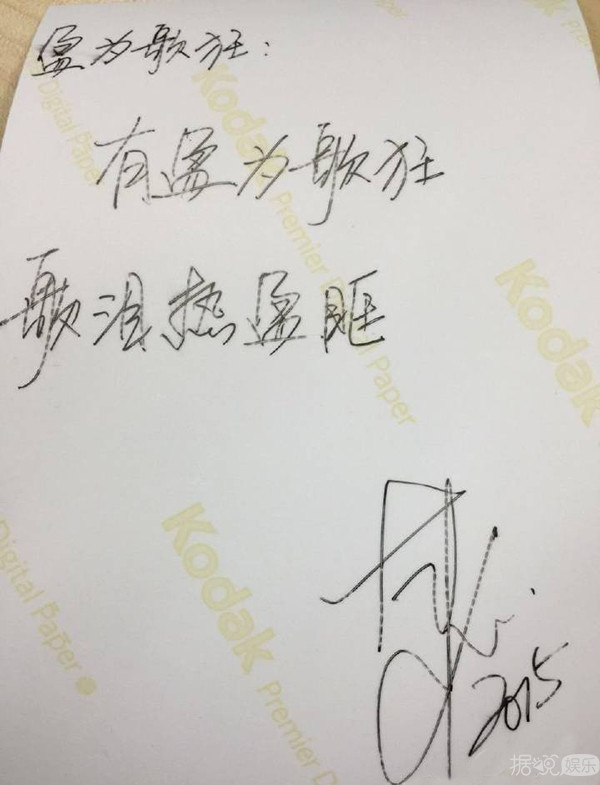 盈为歌狂：
有盈为歌狂
歌泪热盈眶
2015
Kodak
Digital Paper
Kodak Premier D
Paper
Kodak
Kodak Premier D
Digital Paper
据说娱乐